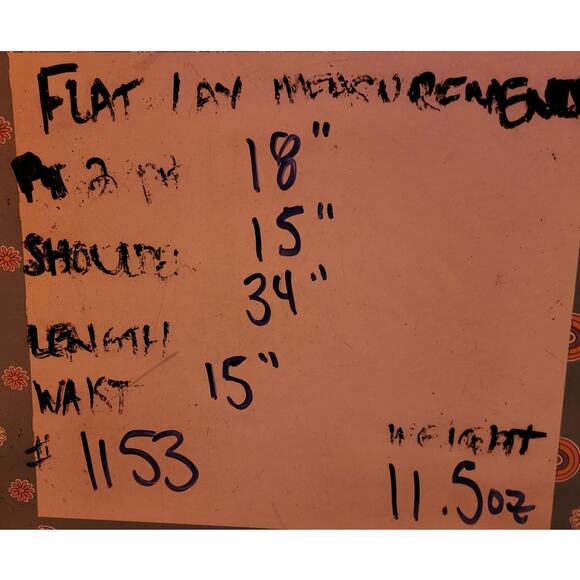 FLAT LAY MEASUREMENTS
Pt 2 pt 18"
SHOULDE 15"
LENGTH 34"
WAIST 15"
# 1153
WEIGHT
11.5oz